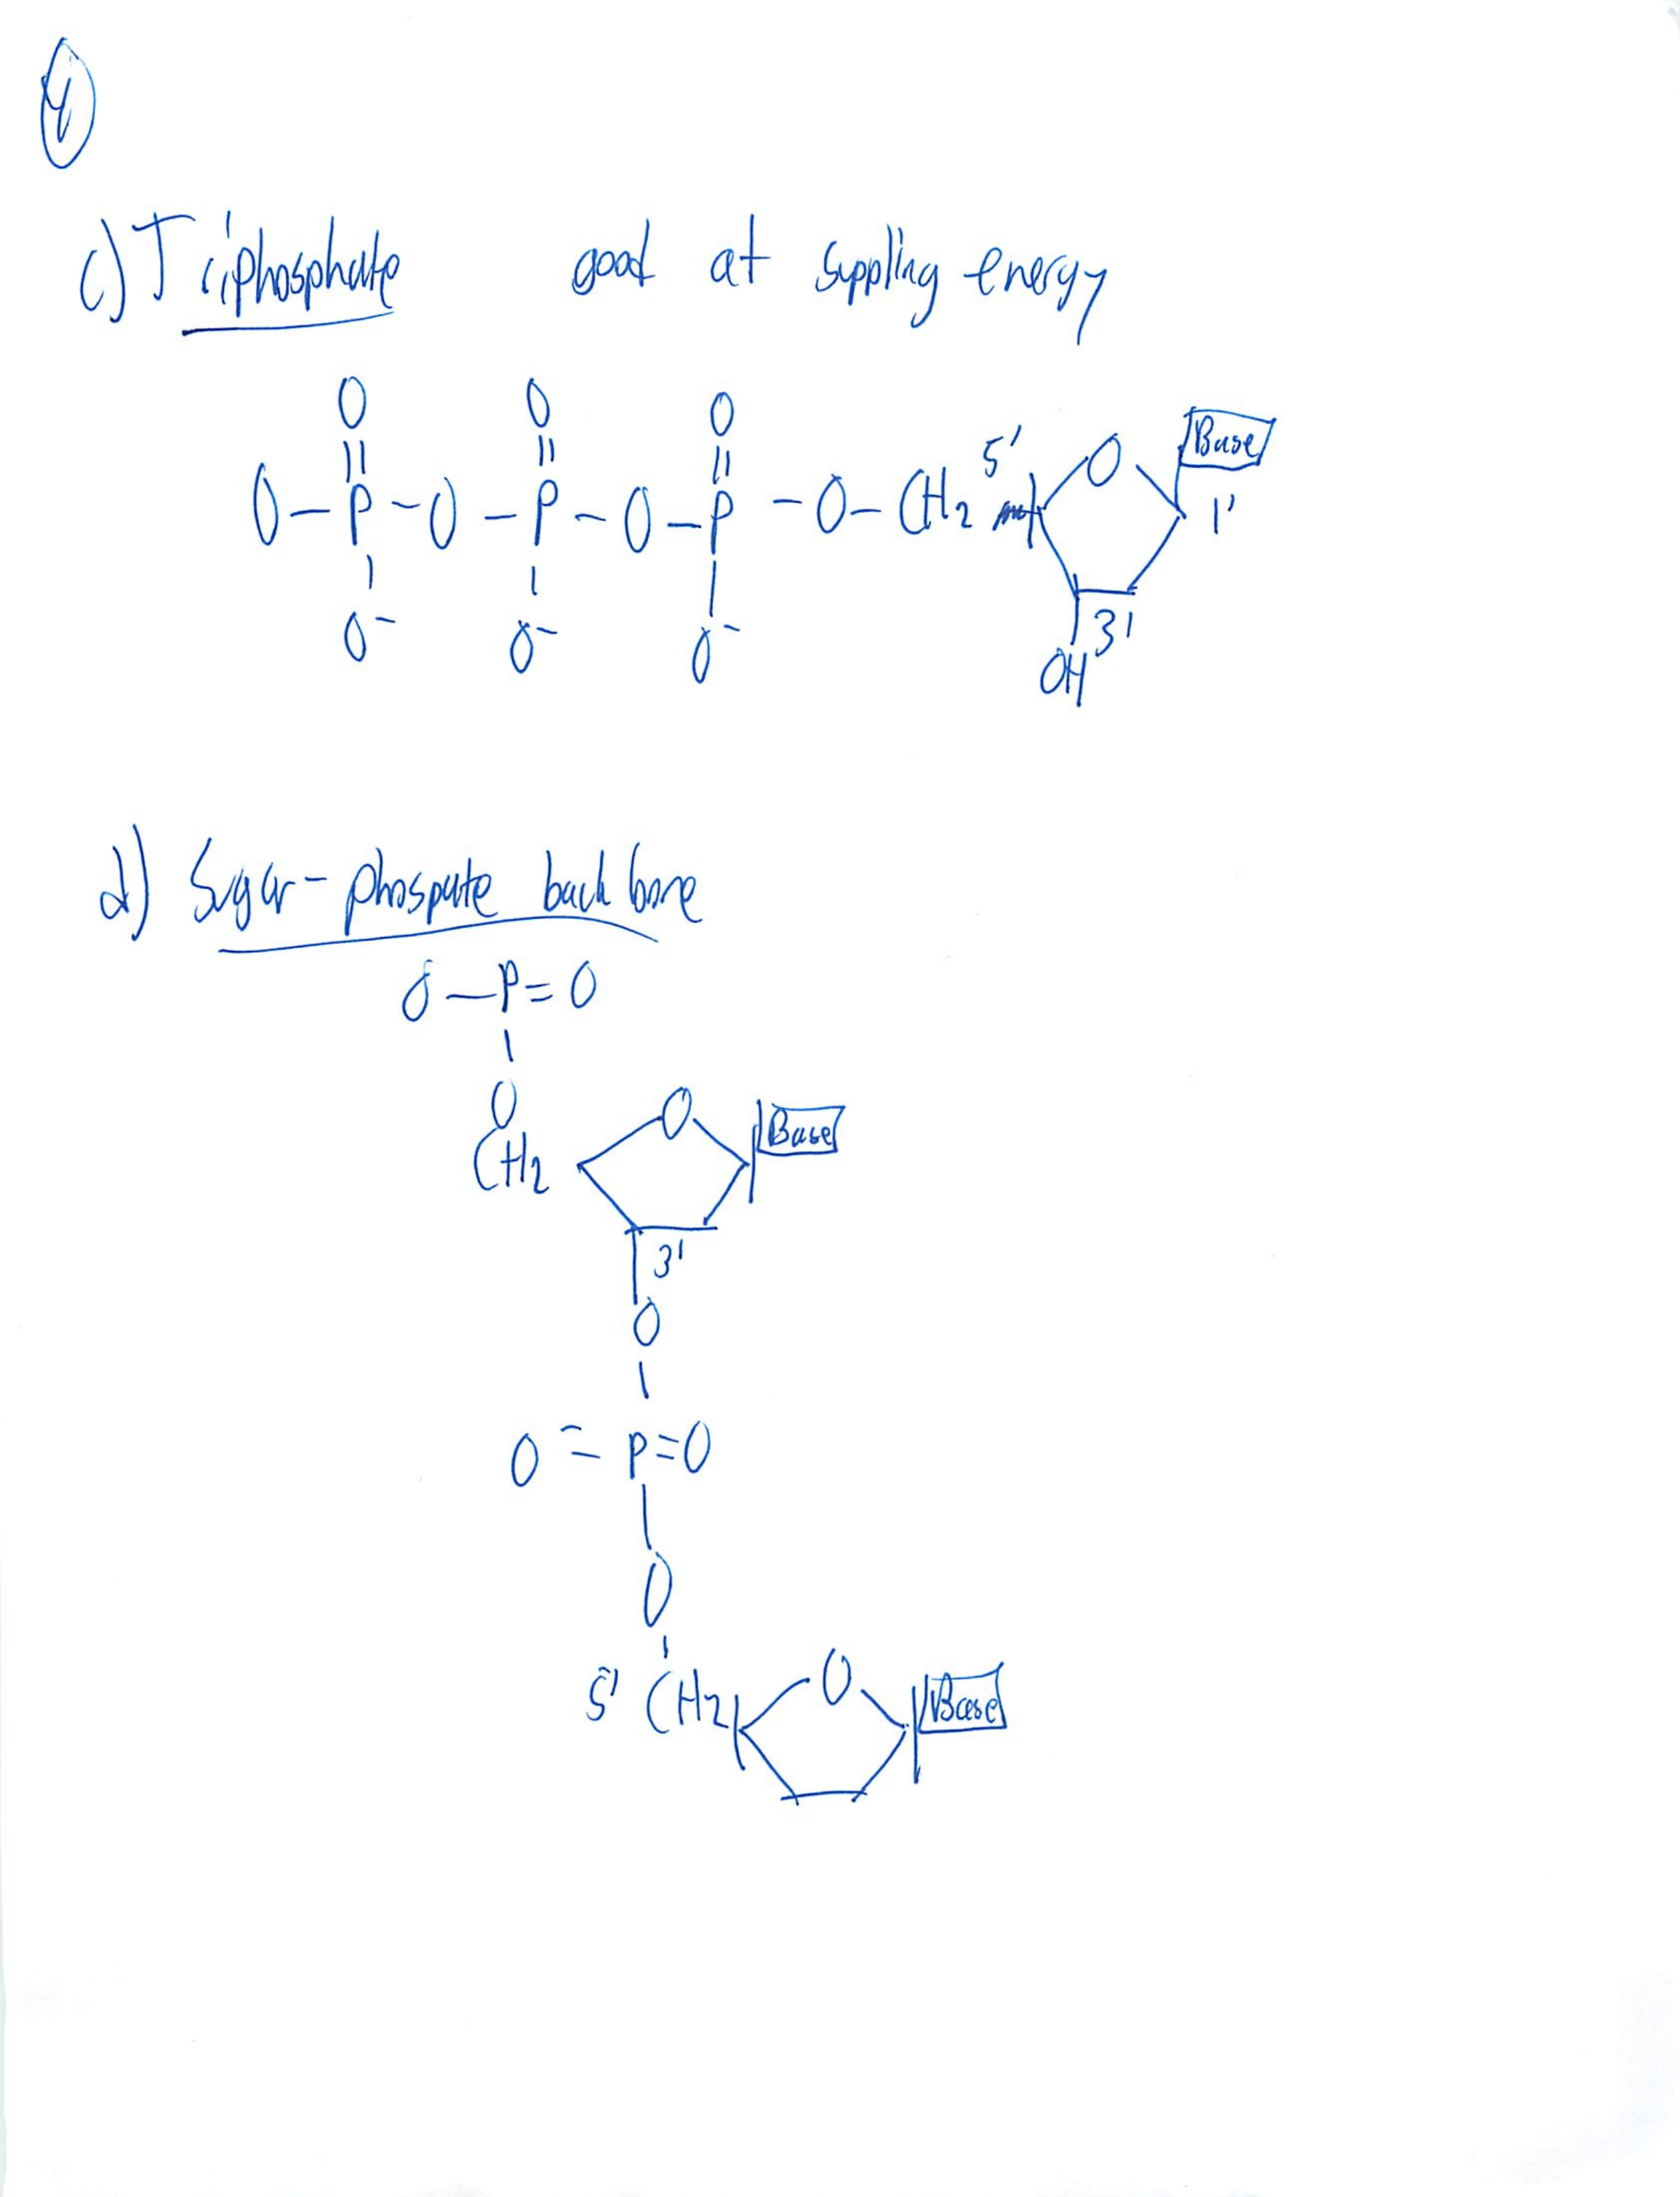 4
c) Triphosphate good at suppling energy
O O O
|| || ||
O-P-O-P-O-P-O-CH2 5' O Base
1'
O- O- O-
3'
OH
d) Sugar-phospate backbone
O-P=O
O
CH2 O Base
3'
O
O- - P=O
O
5' CH2 O Base